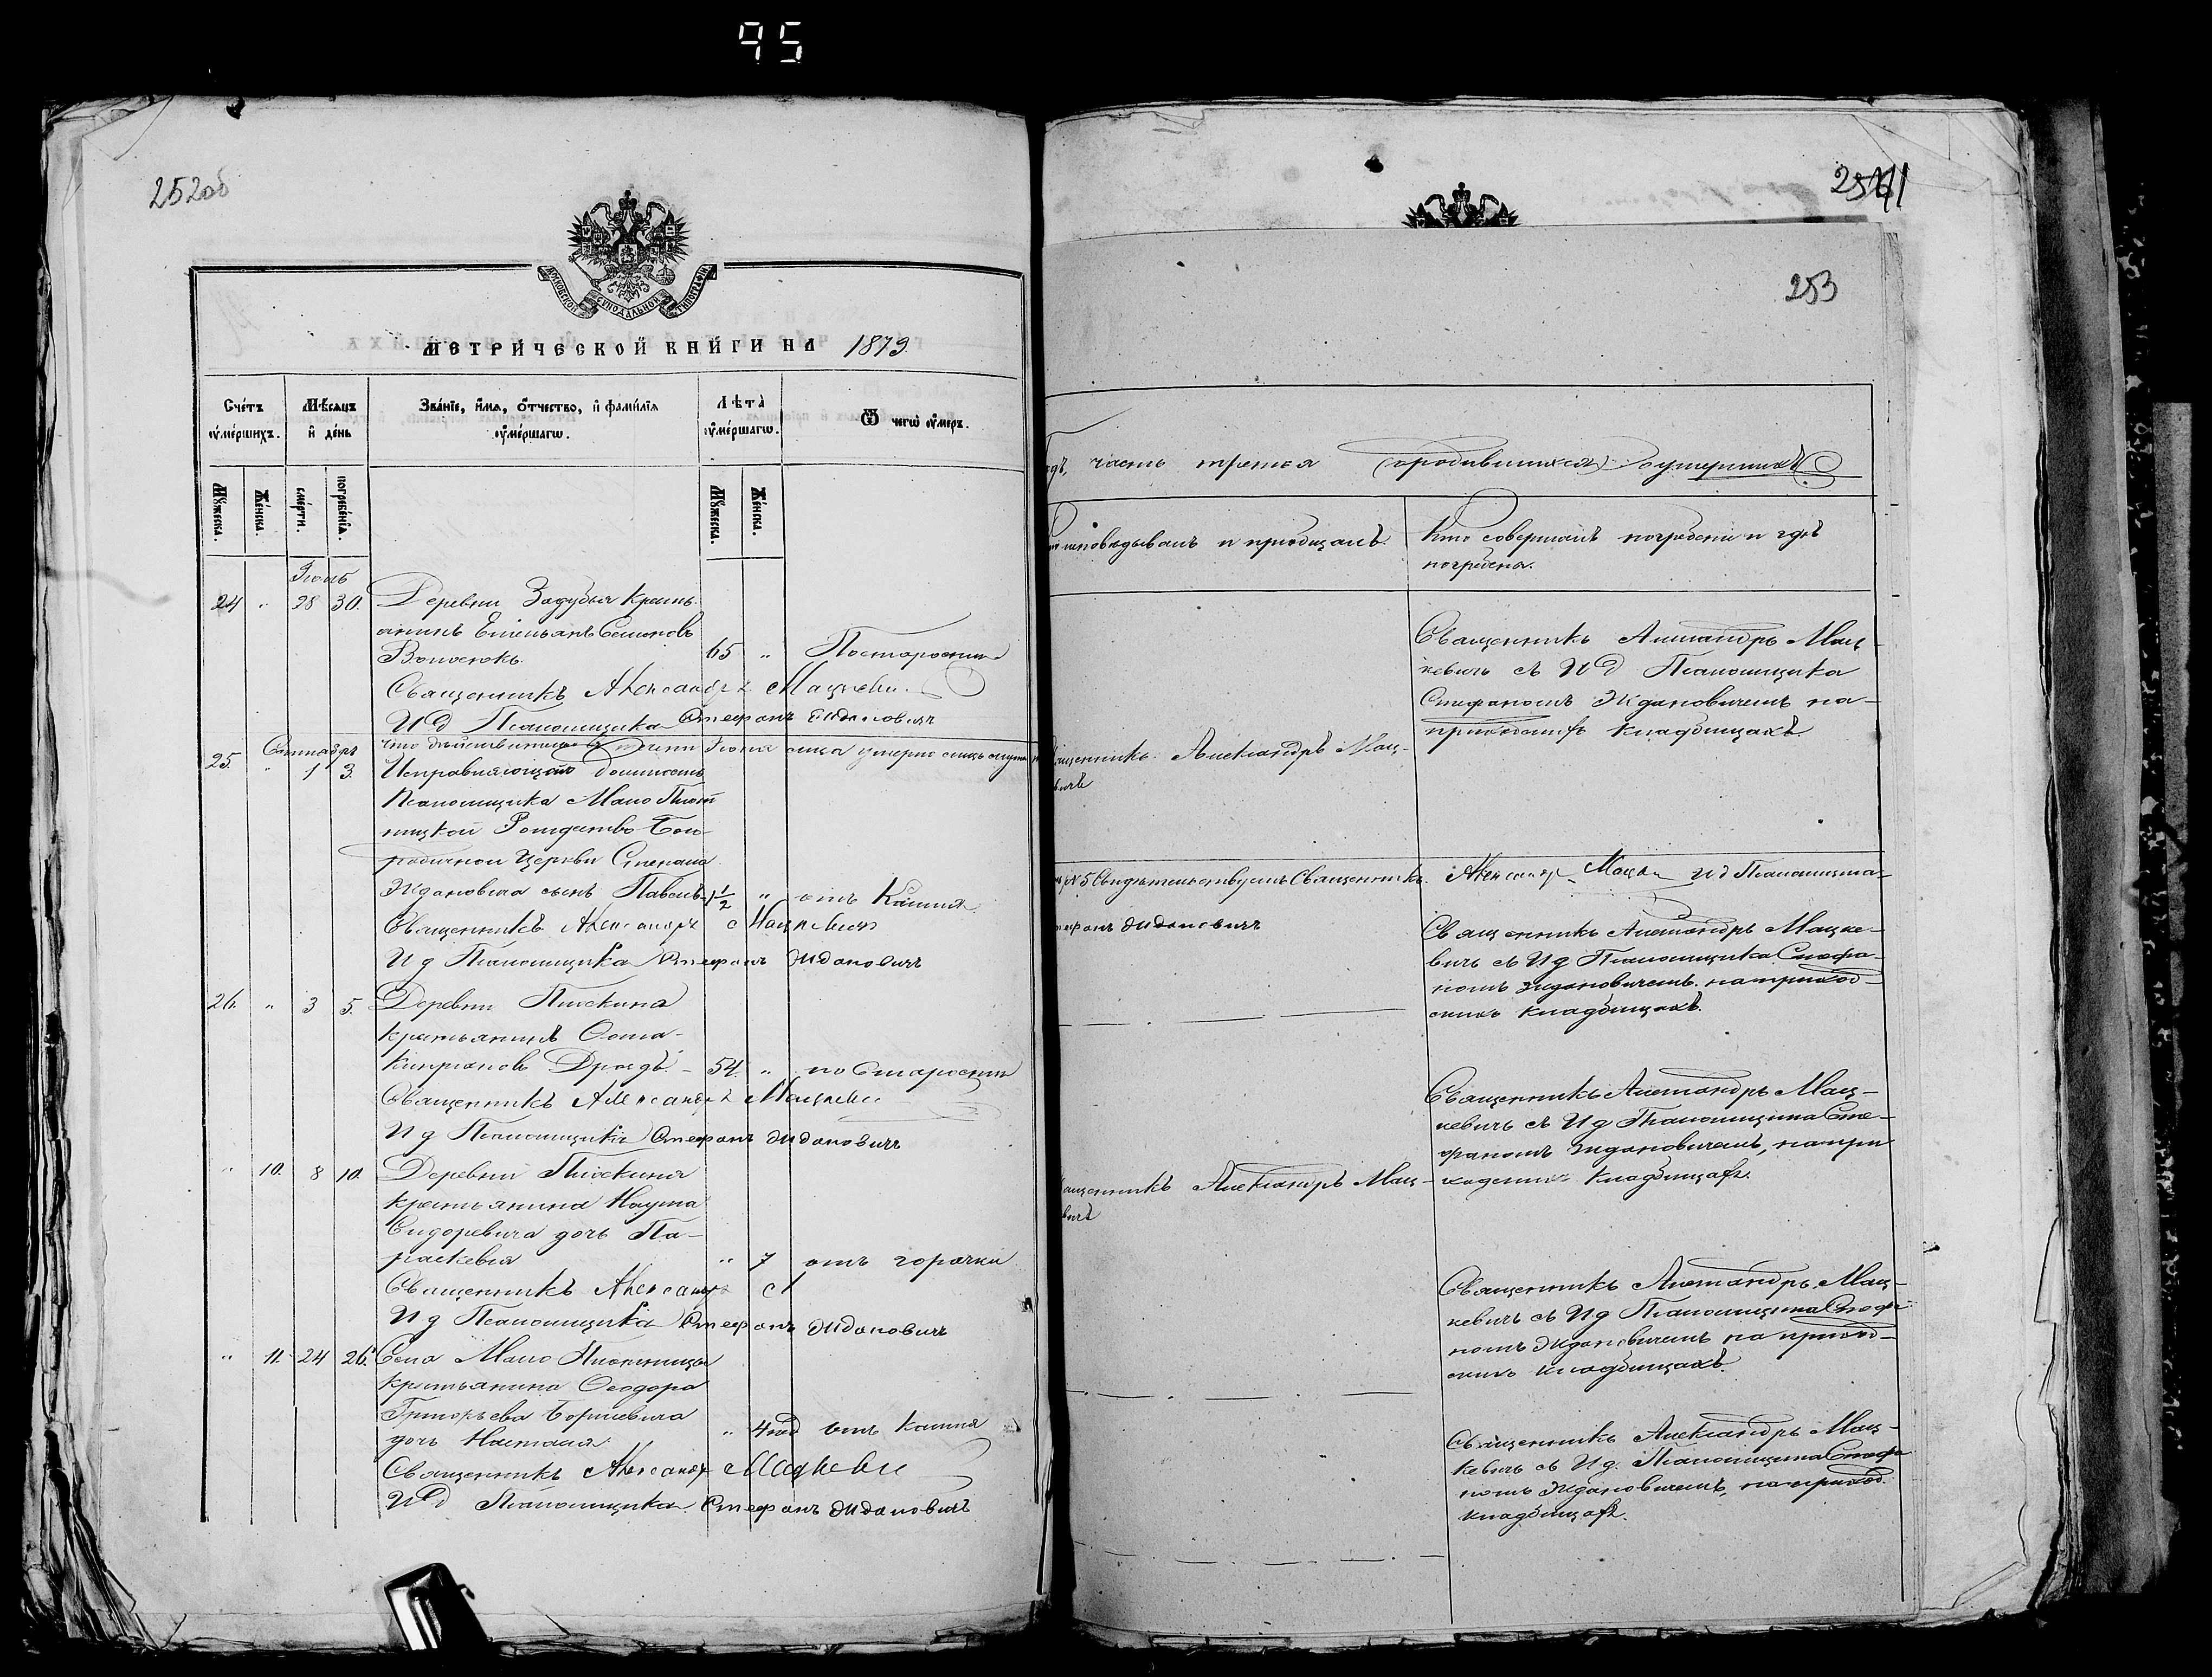 95
252об
МОСКОВСКОЙ СУНОДАЛЬНОЙ ТИПОГРАФІИ
МЕТРИЧЕСКОЙ КНИГИ НА 1879
Счетъ умершихъ.
Мѣсяцъ и день
Званіе, имя, отчество, и фамилія умершагѡ.
Лѣта умершагѡ.
Ѿ чегѡ умеръ.
Мужеска.
Женска.
смерти.
погребенія.
Мужеска.
Женска.
24 " 28 30. Деревни Задубья кресть-
янинъ Емельянъ Семеновъ
65 "
Священникъ Александръ Мацкеви
ИД Псаломщика Стефанъ Ждановичъ
25. " 1 3. Исправляющаго должность
Псаломщика Мало Плот
ницкой Рождество Бого-
родичной Церкви Степана
Ждановича сынъ Павелъ 1½ " отъ Кашля
Священникъ Александръ Мацкевичъ
И д Псаломщика Стефанъ Ждановичъ
26. " 3 5. Деревни
крестьянинъ Ѳома
Кипріановъ Дроздъ - 54. " по Старости
Священникъ Александръ Мацкеви
И д Псаломщика Стефанъ Ждановичъ
" 10. 8 10. Деревни
крестьянина Наума
Сидоревича дочь Па-
раскевія " 7 отъ горячки
Священникъ Александръ М
И д Псаломщика Стефанъ Ждановичъ
" 11. 24 26. Села Мало Плотницы
крестьянина Ѳеодора
Григорьева
дочь Наталія " 4 отъ кашля
Священникъ Александръ Мацкеви
ИД Псаломщика Стефанъ Ждановичъ
253
часть третья о умершихъ
исповѣдывалъ и пріобщалъ.
Кто совершалъ погребеніе и гдѣ
погребены.
Священникъ Александръ Мац-
кевичъ съ И Д Псаломщика
Стефаномъ Ждановичемъ на
приходскихъ кладбищахъ.
Александръ Мац-
вичъ
№ 5 Свидѣтельствуемъ Священникъ Александръ И д Псаломщика
Ждановичъ
Священникъ Александръ Мацке-
вичъ съ И д Псаломщика Стефа-
номъ Ждановичемъ на приход-
скихъ кладбищахъ.
Священникъ Александръ Мац-
кевичъ съ И д Псаломщика Сте-
фаномъ Ждановичемъ, на при
ходскихъ кладбищахъ.
Александръ Мац-
вичъ
Священникъ Александръ Мац-
кевичъ съ И д Псаломщика Стефа
номъ Ждановичемъ на приход-
скихъ кладбищахъ.
Священникъ Александръ Мац-
кевичъ съ И д. Псаломщика Стефа
номъ Ждановичемъ, на приход.
кладбищахъ.